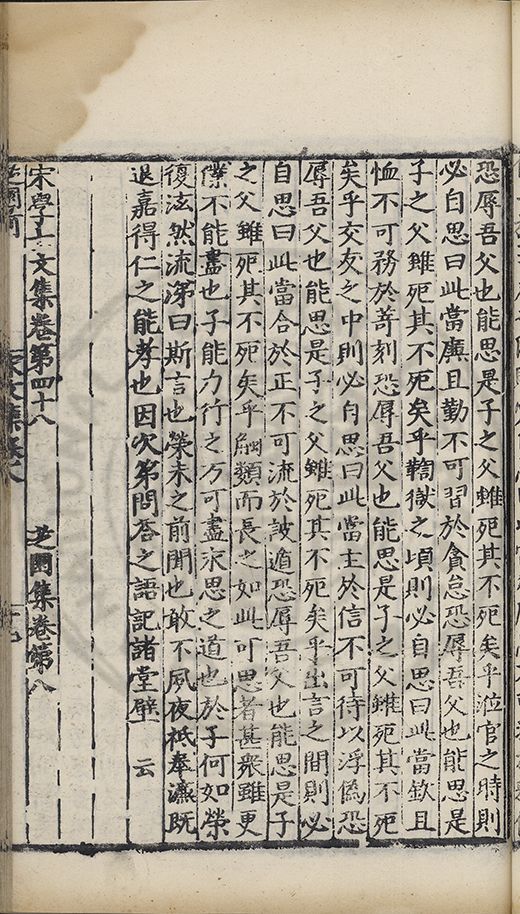 恐辱吾父也能思是子之父雖死其不死矣乎涖官之時則
必自思曰此當廉且勤不可習於貪怠恐辱吾父也能思是
子之父雖死其不死矣乎鞫獄之頃則必自思曰此當欽且
恤不可務於苛刻恐辱吾父也能思是子之父雖死其不死
矣乎交友之中則必自思曰此當主於信不可待以浮偽恐
辱吾父也能思是子之父雖死其不死矣乎出言之間則必
自思曰此當合於正不可流於詖遁恐辱吾父也能思是子
之父雖死其不死矣乎觸類而長之如此可思者甚衆雖更
僕不能盡也子能力行之方可盡永思之道也於子何如榮
復泫然流涕曰斯言也榮未之前聞也敢不夙夜祗奉濂既
退嘉得仁之能孝也因次第問答之語記諸堂壁 云
宋學士文集卷第四十八 芝園集卷第八